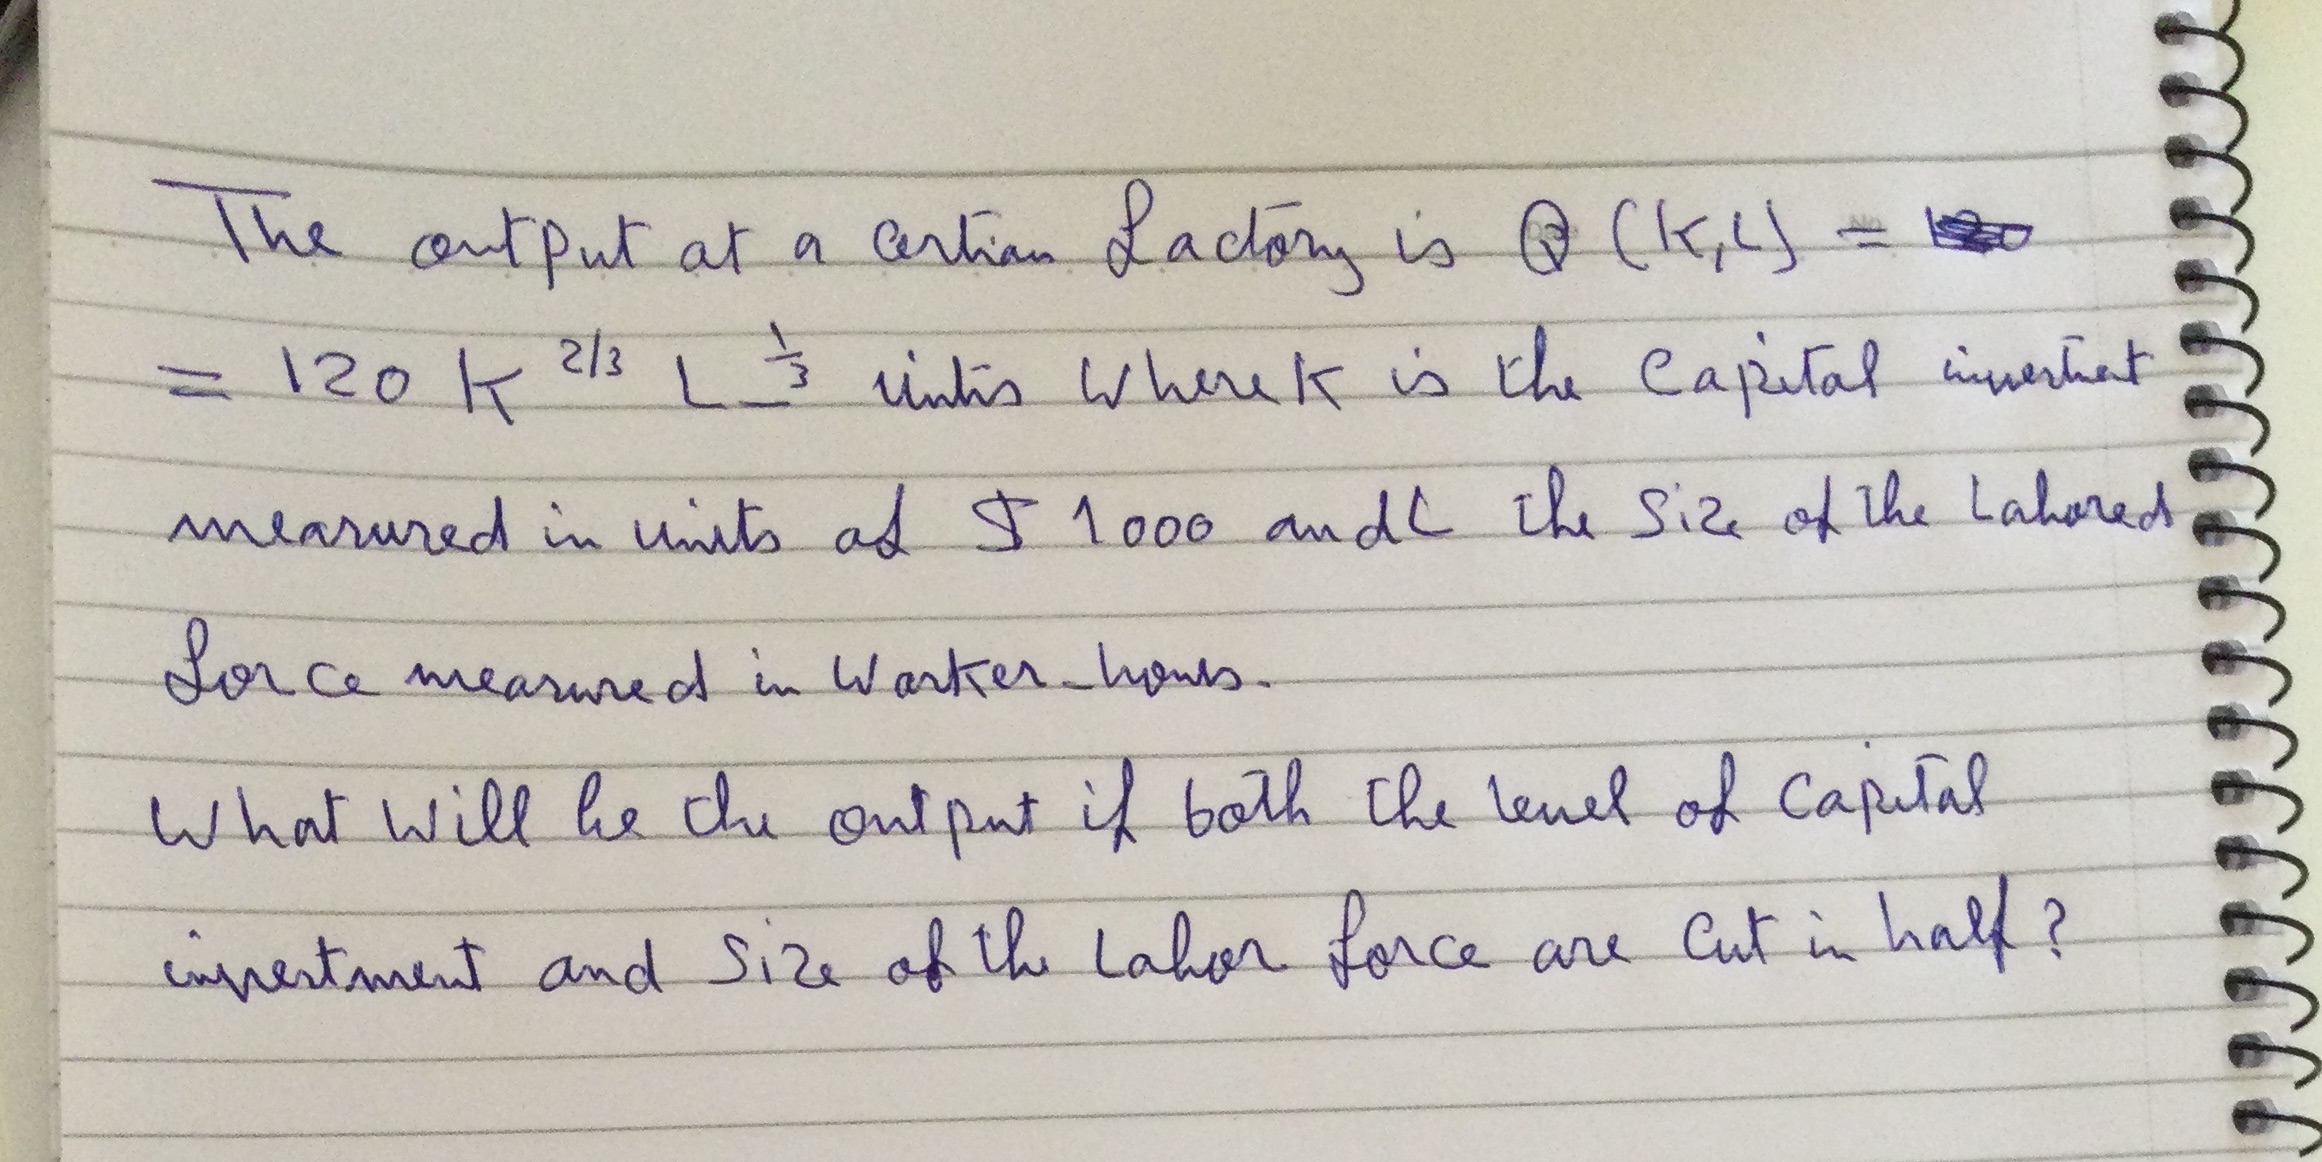 The output at a certian factory is Q (K,L) =
= 120 K 2/3 L 1/3 units where K is the Capital
measured in units of $ 1000 and L the size of the Labored
force measured in Worker-hours.
What will be the output if both the level of Capital
investment and size of the Labor force are cut in half?